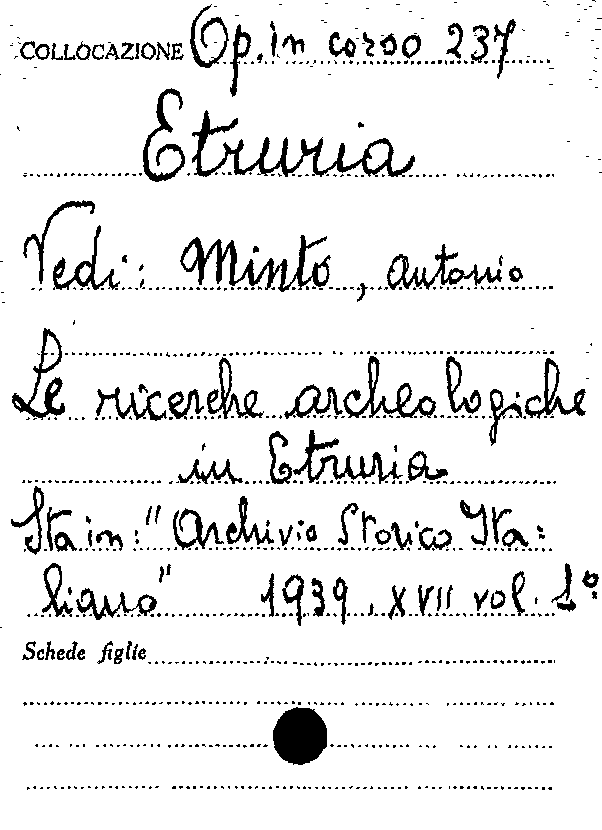 COLLOCAZIONE Op. in corso 237
Etruria
Vedi: Minto, Antonio
Le ricerche archeologiche
in Etruria
Sta in: "Archivio Storico Ita=
liano" 1939, XVII vol. 1º
Schede figlie